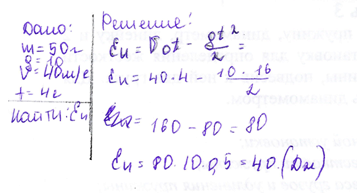 Дано:
m = 50г
g = 10
V = 40м/с
t = 4с
Найти: Еп
Решение:
Еп = V₀t - gt²/2 =
Еп = 40·4 - 10·16/2
= 160 - 80 = 80
Еп = 80·10·0,5 = 40. (Дж)